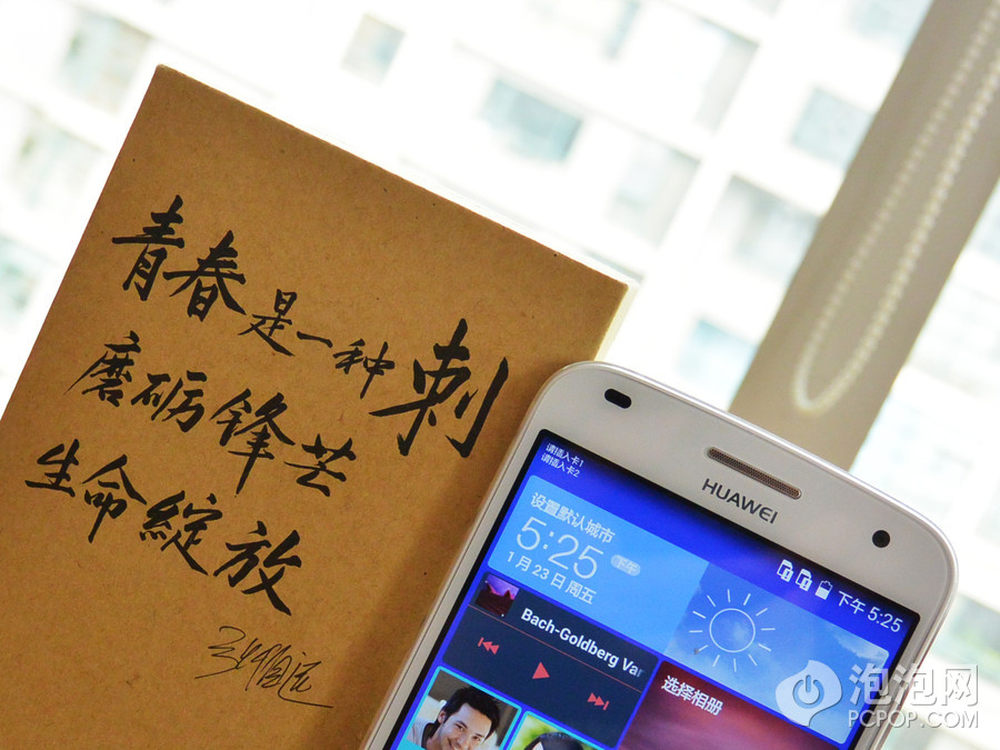 青春是一种刺
磨砺锋芒
生命綻放
HUAWEI
请插入卡1
请插入卡2
下午5:25
设置默认城市
5:25 下午
1月23日 周五
Bach-Goldberg Var
选择相册
泡泡网
PCPOP.COM